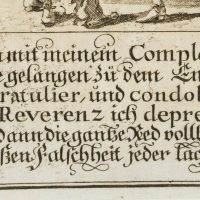 mit meinem Comple
gelangen zu dem En
ratulier, und condol
Reverenz ich depre
Dann die gantze Red vollb
ßen Falschheit jeder lac